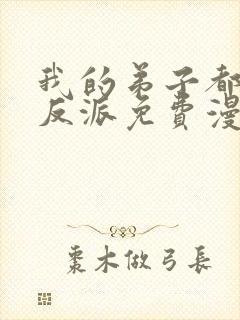 我的弟子都
反派免費漫
棗木做弓長